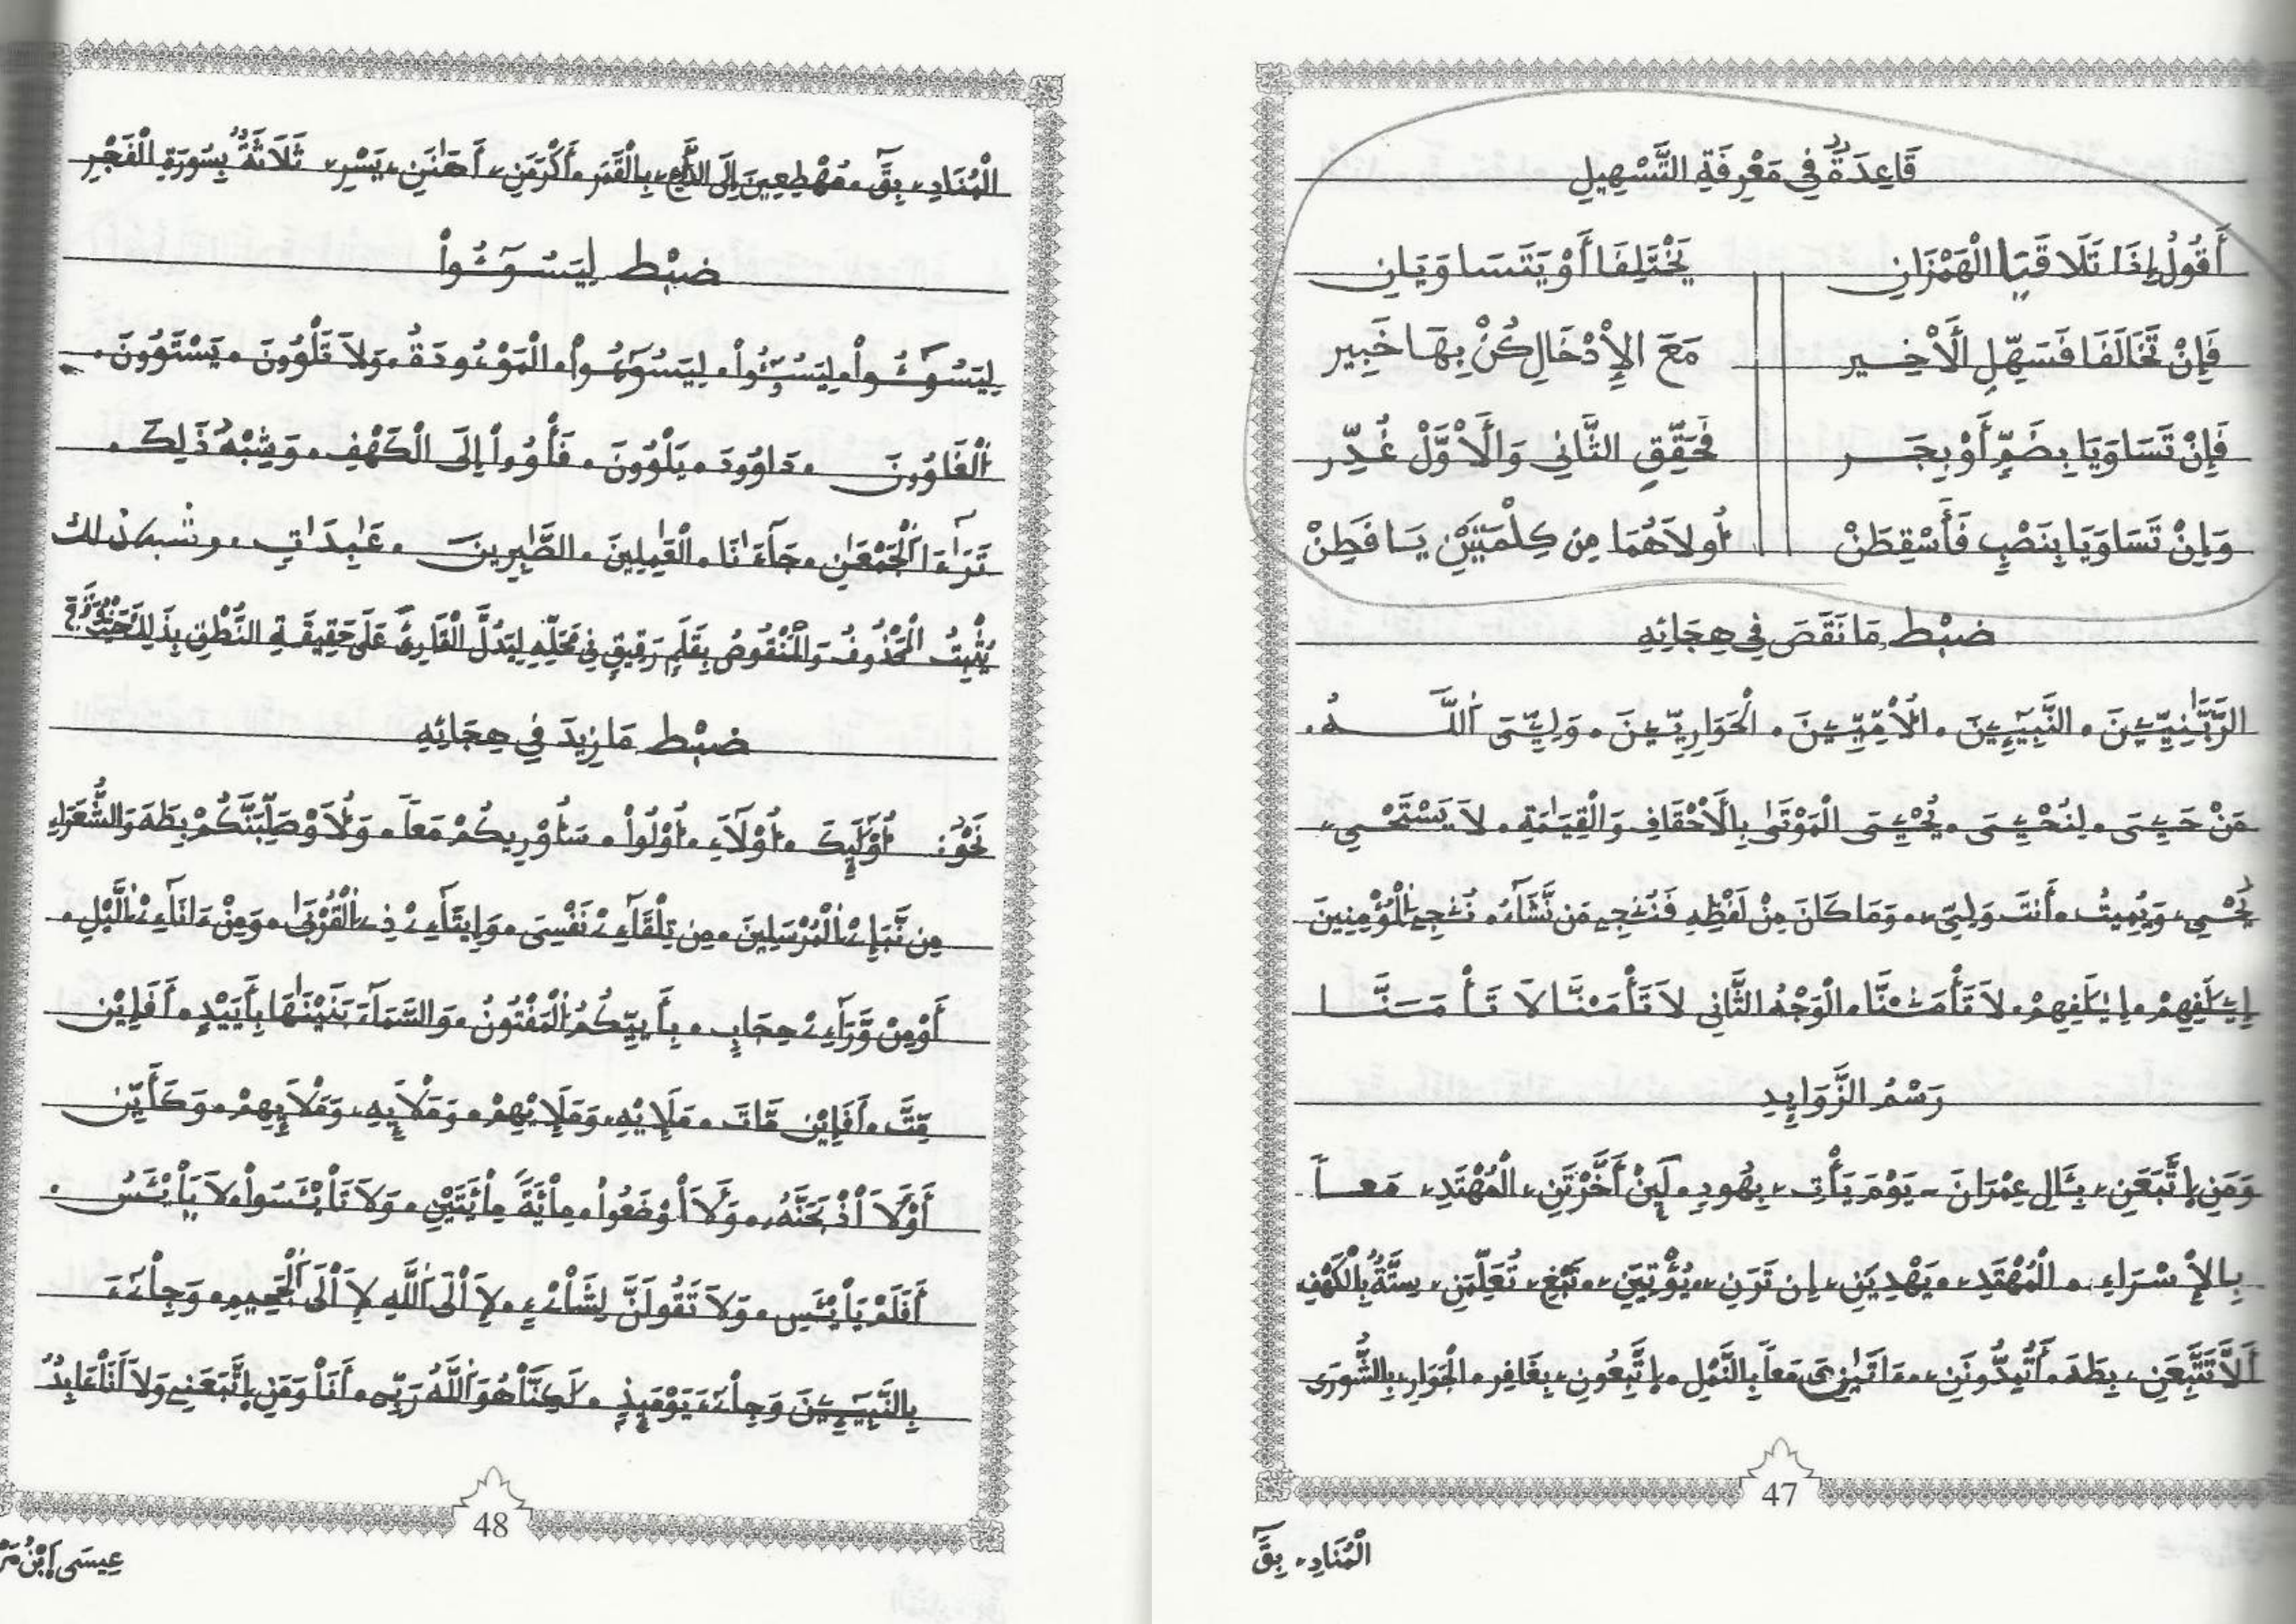 قَاعِدَةٌ فِي مَعْرِفَةِ التَّسْهِيلِ
أَقُولُ إِذَا تَلَاقَيَا الْهَمْزَانِ يَخْتَلِفَا أَوْ يَتَسَاوَيَانِ
فَإِنْ تَخَالَفَا فَسَهِّلِ الْأَخِير مَعَ الإِدْخَالِ كُنْ بِهَا خَبِير
فَإِنْ تَسَاوَيَا بِضَمٍّ أَوْ بِجَر فَحَقِّقِ الثَّانِي وَالْأَوَّلْ غُيِّر
وَإِنْ تَسَاوَيَا بِنَصْبٍ فَأَسْقِطَنْ أُولَاهُمَا مِن كِلْمَتَيْنِ يَا فَطِنْ
ضَبْط مَا نَقَصَ فِي هِجَائِهِ
الرَّبَّٰنِيِّـۧنَ. النَّبِيٓـِٕۧنَ. الْأُمِّيِّـۧنَ. الْحَوَارِيِّـۧنَ. وَلِـِّۧيَ اَللَّهُ.
مَنْ حَيِيَ. لِنُحْـِۧيَ. يُحْـِۧيَ الْمَوْتَىٰ بِالْأَحْقَافِ وَالْقِيَٰمَةِ. لَا يَسْتَحْيِۦ
يُحْيِۦ وَيُمِيتُ. أَنتَ وَلِيِّۦ. وَمَا كَانَ مِنْ لَفْظِهِ فَنُنجِے مَن نَّشَآءُ. نُنجِے اِلْمُؤْمِنِينَ
إِۦلَٰفِهِمْ. إِيلَٰفِهِمْ. لَا تَأْمَ۬نَّا. الْوَجْهُ الثَّانِي لَا تَأْمَنَّا لَا تَأْمَنَّا
رَسْمُ الزَّوَايِدِ
وَمَنِ اِتَّبَعَنِۦ بِـَٔالِ عِمْرَانَ - يَوْمَ يَأْتِۦ بِهُودِ. لَئِنْ أَخَّرْتَنِۦ الْمُهْتَدِۦ مَعاً
بِالإِسْرَاءِ. الْمُهْتَدِۦ. يَهْدِيَنِۦ. إِن تَرَنِۦ. يُؤْتِيَنِۦ. نَبْغِۦ تُعَلِّمَنِۦ سِتَّةٌ بِالْكَهْفِ
أَلَّا تَتَّبِعَنِۦ بِطَهَ. أَتُمِدُّونَنِۦ. ءَاتَىٰنِۦَ مَعاً بِالنَّمْلِ. اِتَّبِعُونِۦ بِغَافِرِ. الْجَوَارِۦ بِالشُّورَى
47
الْمُنَادِۦ بِقَٓ
الْمُنَادِۦ بِقَٓ. مُهْطِعِينَ إِلَى الدَّاعِۦ بِالْقَمَرِ. أَكْرَمَنِۦ أَهَٰنَنِۦ يَسْرِۦ ثَلَاثَةٌ بِسُورَةِ الْفَجْرِ
ضَبْط لِيَسُـۥٓـُٔواْ
لِيَسُـۥٓـُٔواْ. لِيَسُـۥٓـُٔواْ. لِيَسُوٓءُواْ. الْمَوْءُودَةُ. وَلَا تَلْوُۥنَ. يَسْتَوُۥنَ.
اَلْغَاوُۥنَ. دَاوُۥدَ. يَلْوُۥنَ. فَأْوُۥاْ إِلَى الْكَهْفِ. وَشِبْهُ ذَٰلِكَ.
تَرَٰٓءَا اَلْجَمْعَٰنِ. جَآءَٰنَا. الْعَٰمِلِينَ. الصَّٰبِرِينَ. عَٰبِدَاتٍ. وشبه ذلك
يُثْبِتُ الْمَحْذُوفُ وَالْمَنْقُوصُ بِقَلَمٍ رَقِيقٍ فِي مَحَلِّهِ لِيَدُلَّ الْقَارِئَ عَلَى حَقِيقَةِ النُّطْقِ بِذَلِكَ
ضَبْط مَا زِيدَ فِي هِجَائِهِ
نَحْوُ: أُوْلَٰٓئِكَ. أُوْلَآءِ. أُوْلُواْ. سَأُوْرِيكُمْ مَعاً. وَلَأُوْصَلِّبَنَّكُمْ بِطَهَ وَالشُّعَرَاءِ
مِن نَّبَإِےْ اِلْمُرْسَلِينَ. مِن تِلْقَآءِےْ نَفْسِيَ. وَإِيتَآءِےْ ذِے اِلْقُرْبَىٰ. وَمِنْ ءَانَآءِےْ اِلَّيْلِ.
أَوْ مِنْ وَّرَآءِےْ حِجَابٍ. بِأَييِّكُمُ اُلْمَفْتُونُ. وَالسَّمَآءَ بَنَيْنَٰهَا بِأَيْيْدٍ. أَفَإِيْن
مِّتَّ. أَفَإِيْن مَّاتَ. مَلَإِيْهِۦ وَمَلَإِيْهِمْ. وَمَلَإِيْهِۦ وَمَلَإِيْهِمْ. وَكَأَيِّن
أَوْ لَأَاْذْبَحَنَّهُۥ. وَلَأَاْوْضَعُواْ. مِاْئَةَ مِاْئَتَيْنِ. وَلَا تَاْيْـَٔسُواْ. لَا يَاْيْـَٔسُ.
أَفَلَمْ يَاْيْـَٔسِ. وَلَا تَقُولَنَّ لِشَاْےْءٍ. لَإِاْلَى اَللَّهِ لَإِاْلَى اَلْجَحِيمِ. وَجِاْےٓءَ
بِالنَّبِيٓـِٕۧنَ وَجِاْےٓءَ يَوْمَئِذٍ. لَٰكِنَّاْ هُوَ اَللَّهُ رَبِّے. أَنَاْ وَمَنِ اِتَّبَعَنِے وَلَآ أَنَاْ عَابِدٌ
48
عِيسَى اَبْنُ